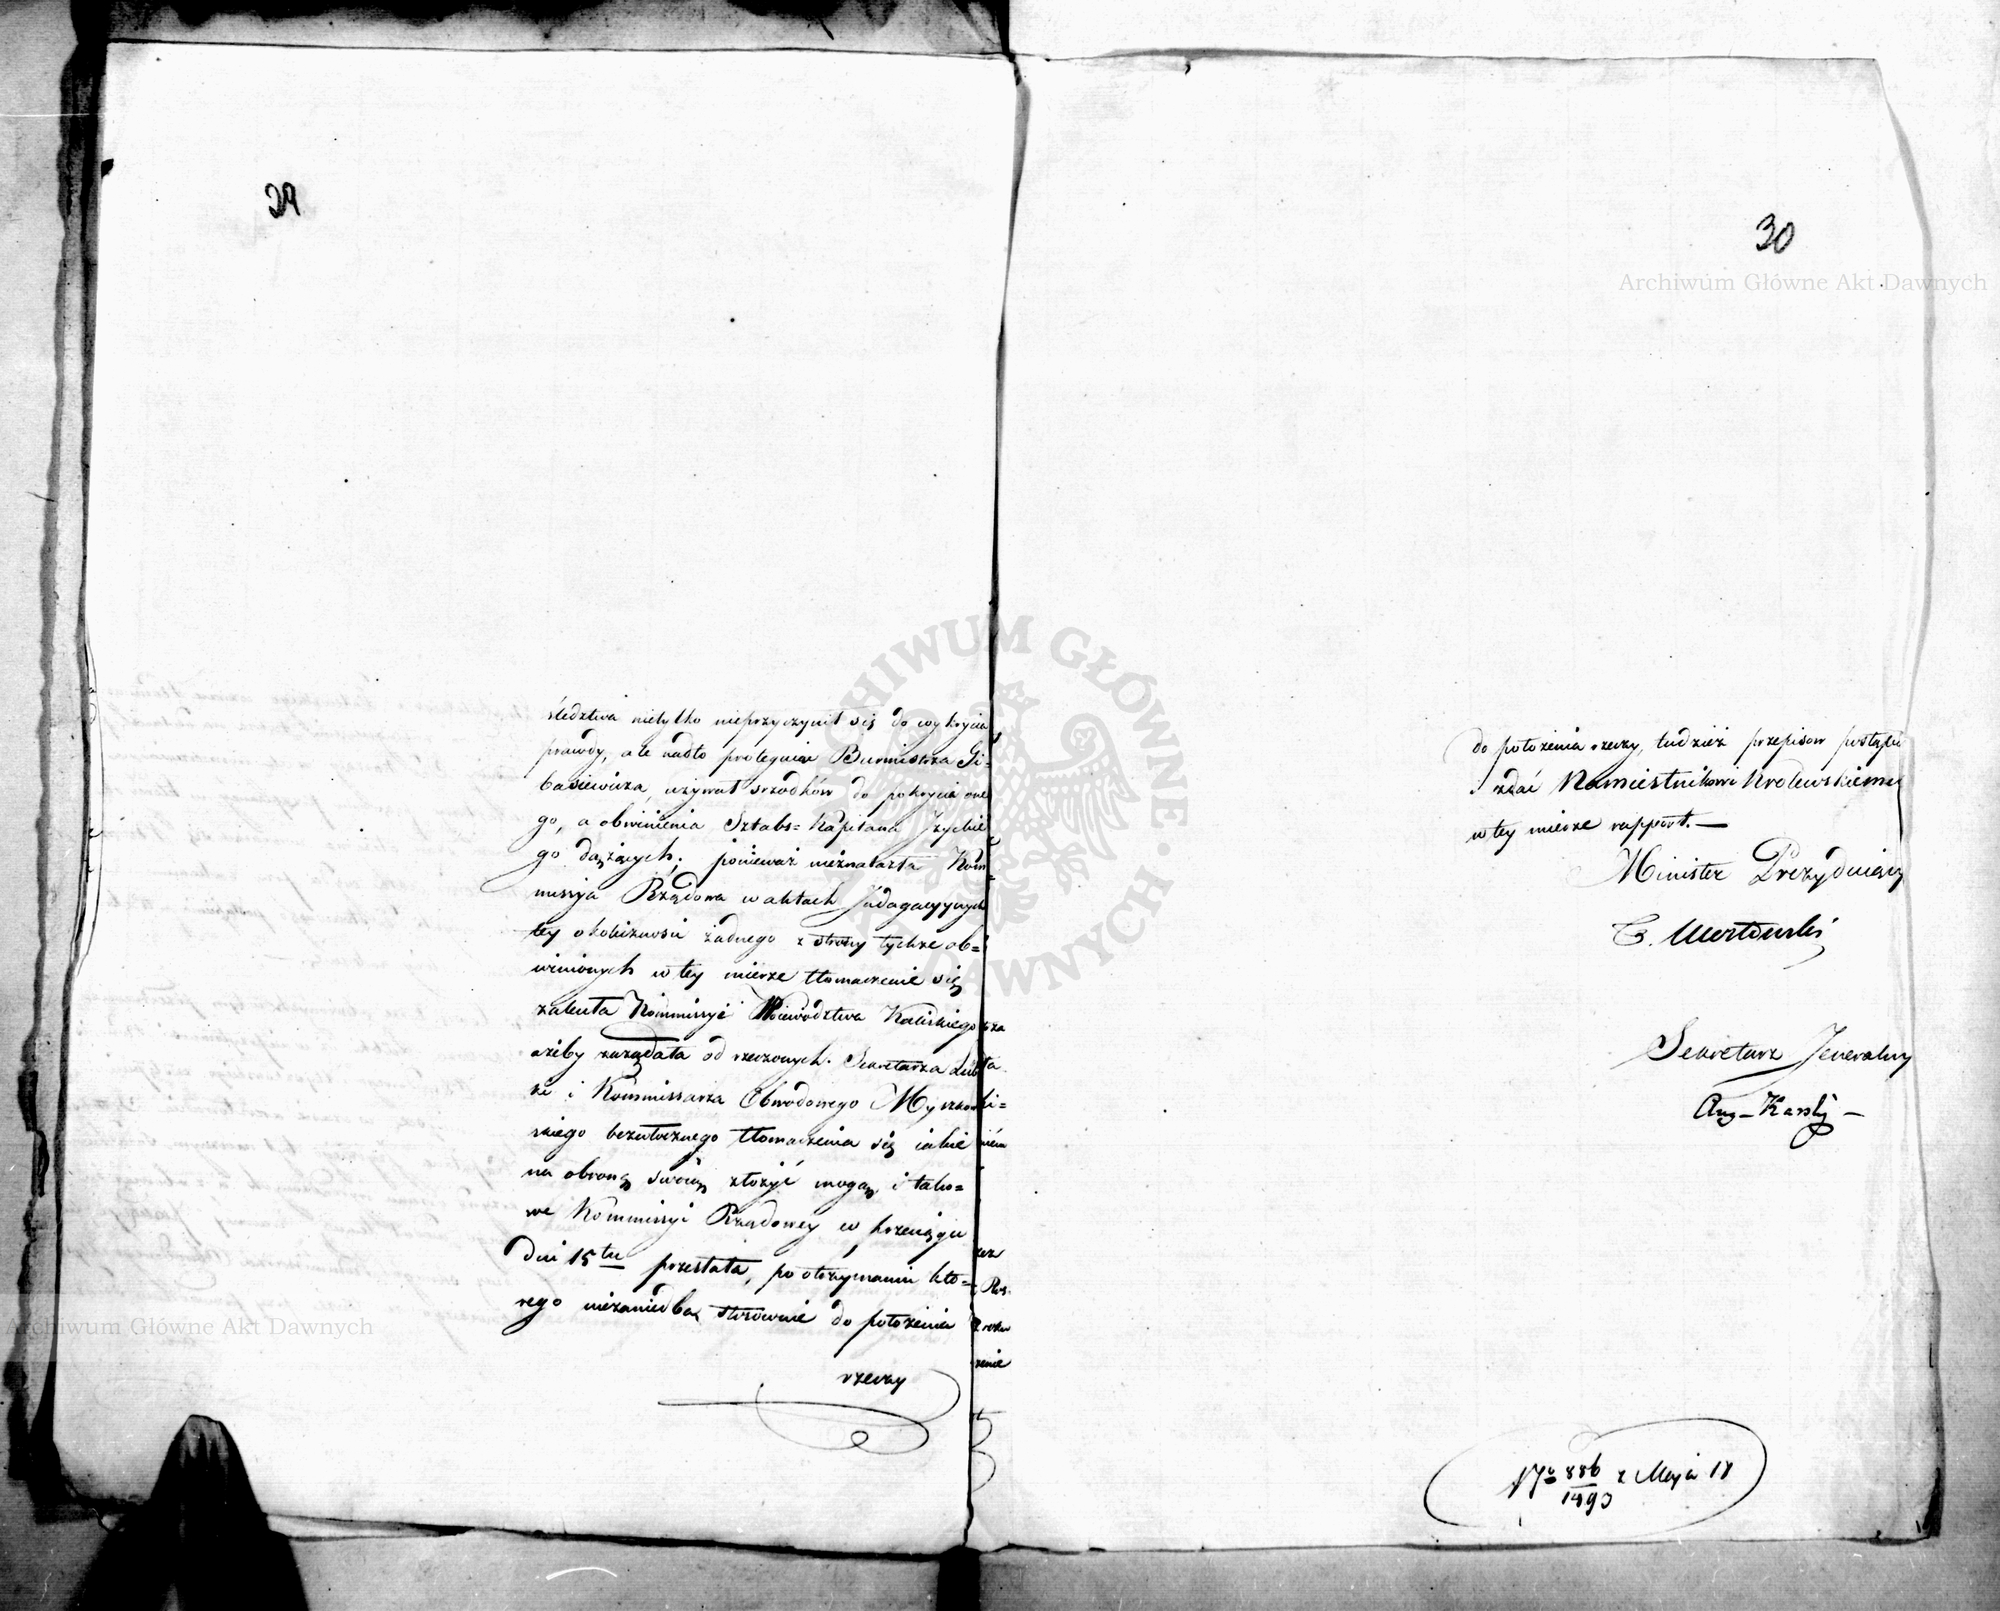 29
śledztwa nietylko nieprzyczynił się do wykrycia
prawdy, ale nadto protegując Burmistrza Gi-
basiewicza, używał srzodków do pokrycia one
go, a obwinienia Sztabs=Kapitana Izyckie
go dążących; ponieważ nieznalazła Kom=
missyja Rządowa w aktach Indagacyynych
tey okoliczności żadnego z strony tychże ob=
winionych w tey mierze tłomaczenie się
zaleca Kommissyi Woiewództwa Kaliskiego
ażeby zażądała od rzeczonych Sekretarza
i Kommissarza Obwodowego
skiego bezzwłocznego tłomaczenia się iakie
na obronę swoię złożyć mogą, i tako=
we Kommissyi Rządowey w przeciągu
dni 15tu przesłała, po otrzymaniu któ=
rego niezaniedba stosownie do położenia
rzeczy
30
do położenia rzeczy, tudzież przepisow postąpić
i zdać Namiestnikowi Krolewskiemu
w tey mierze rapport.—
Minister Prezyduiący
T. Mostowski
Sekretarz Jeneralny
Aug – Karski –
No 886/1493 z Maja 18
Archiwum Główne Akt Dawnych
Archiwum Główne Akt Dawnych
ARCHIWUM GŁÓWNE AKT DAWNYCH